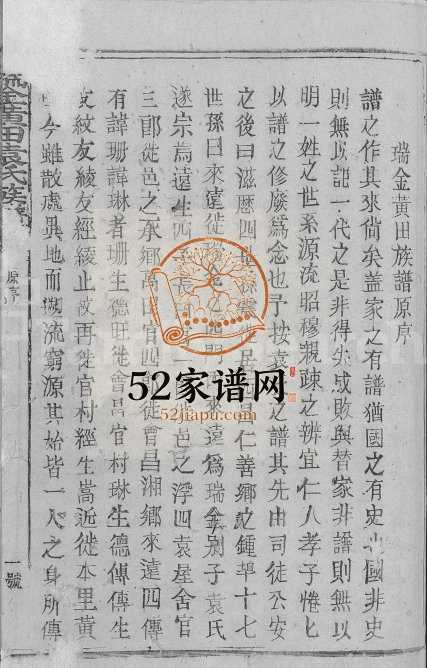 瑞金黄田族譜原序
譜之作其來尙矣蓋家之有譜猶國之有史也國非史
則無以記一代之是非得失成敗與替家非譜則無以
明一姓之世系源流昭穆親踈之辨宜仁人孝子惓匕
以譜之修廢爲念也予按袁氏之譜其先由司徒公安
之後曰滋歷四世 居 昌仁善鄉之鍾 十七
世孫曰來遠徙瑞金之 門 來遠爲瑞金别子袁氏
遂宗焉遠生四子長 一 邑之浮四袁屋舍官
三郎徙邑之承鄉萬田官四郎徙會昌湘鄉來遠四傳
有諱珊諱琳者珊生德旺徙會昌官村琳生德傳傳生
友紋友綾友經綾止紋再徙官村經生嵩近徙本里黄
今雖散處異地而溯流窮源其始皆一人之身所傳
瑞金黄田袁氏族譜
原序
一號
52家谱网
52jiapu.com